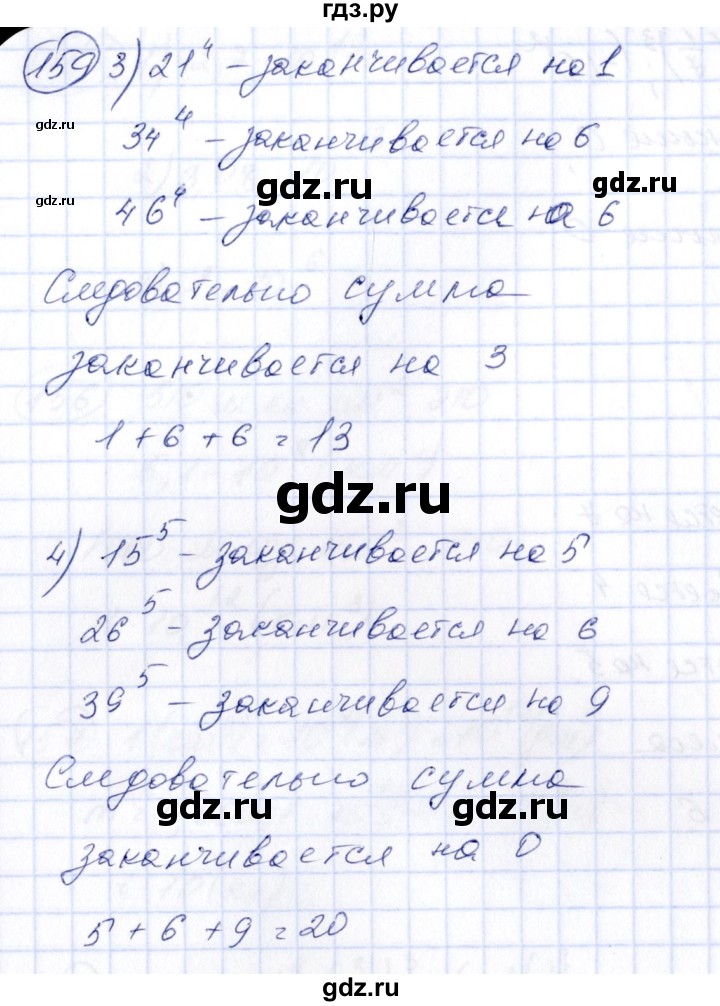 гдз.ру
159 3) 21⁴ – заканчивается на 1
gdz.ru
34⁴ – заканчивается на 6
gdz.ru gdz.ru
gdz.ru
46⁴ – заканчивается на 6
Следовательно сумма
заканчивается на 3
1 + 6 + 6 = 13
gdz.ru
4) 15⁵ – заканчивается на 5
26⁵ – заканчивается на 6
39⁵ – заканчивается на 9
Следовательно сумма
gdz.ru gdz.ru
заканчивается на 0
5 + 6 + 9 = 20
gdz.ru